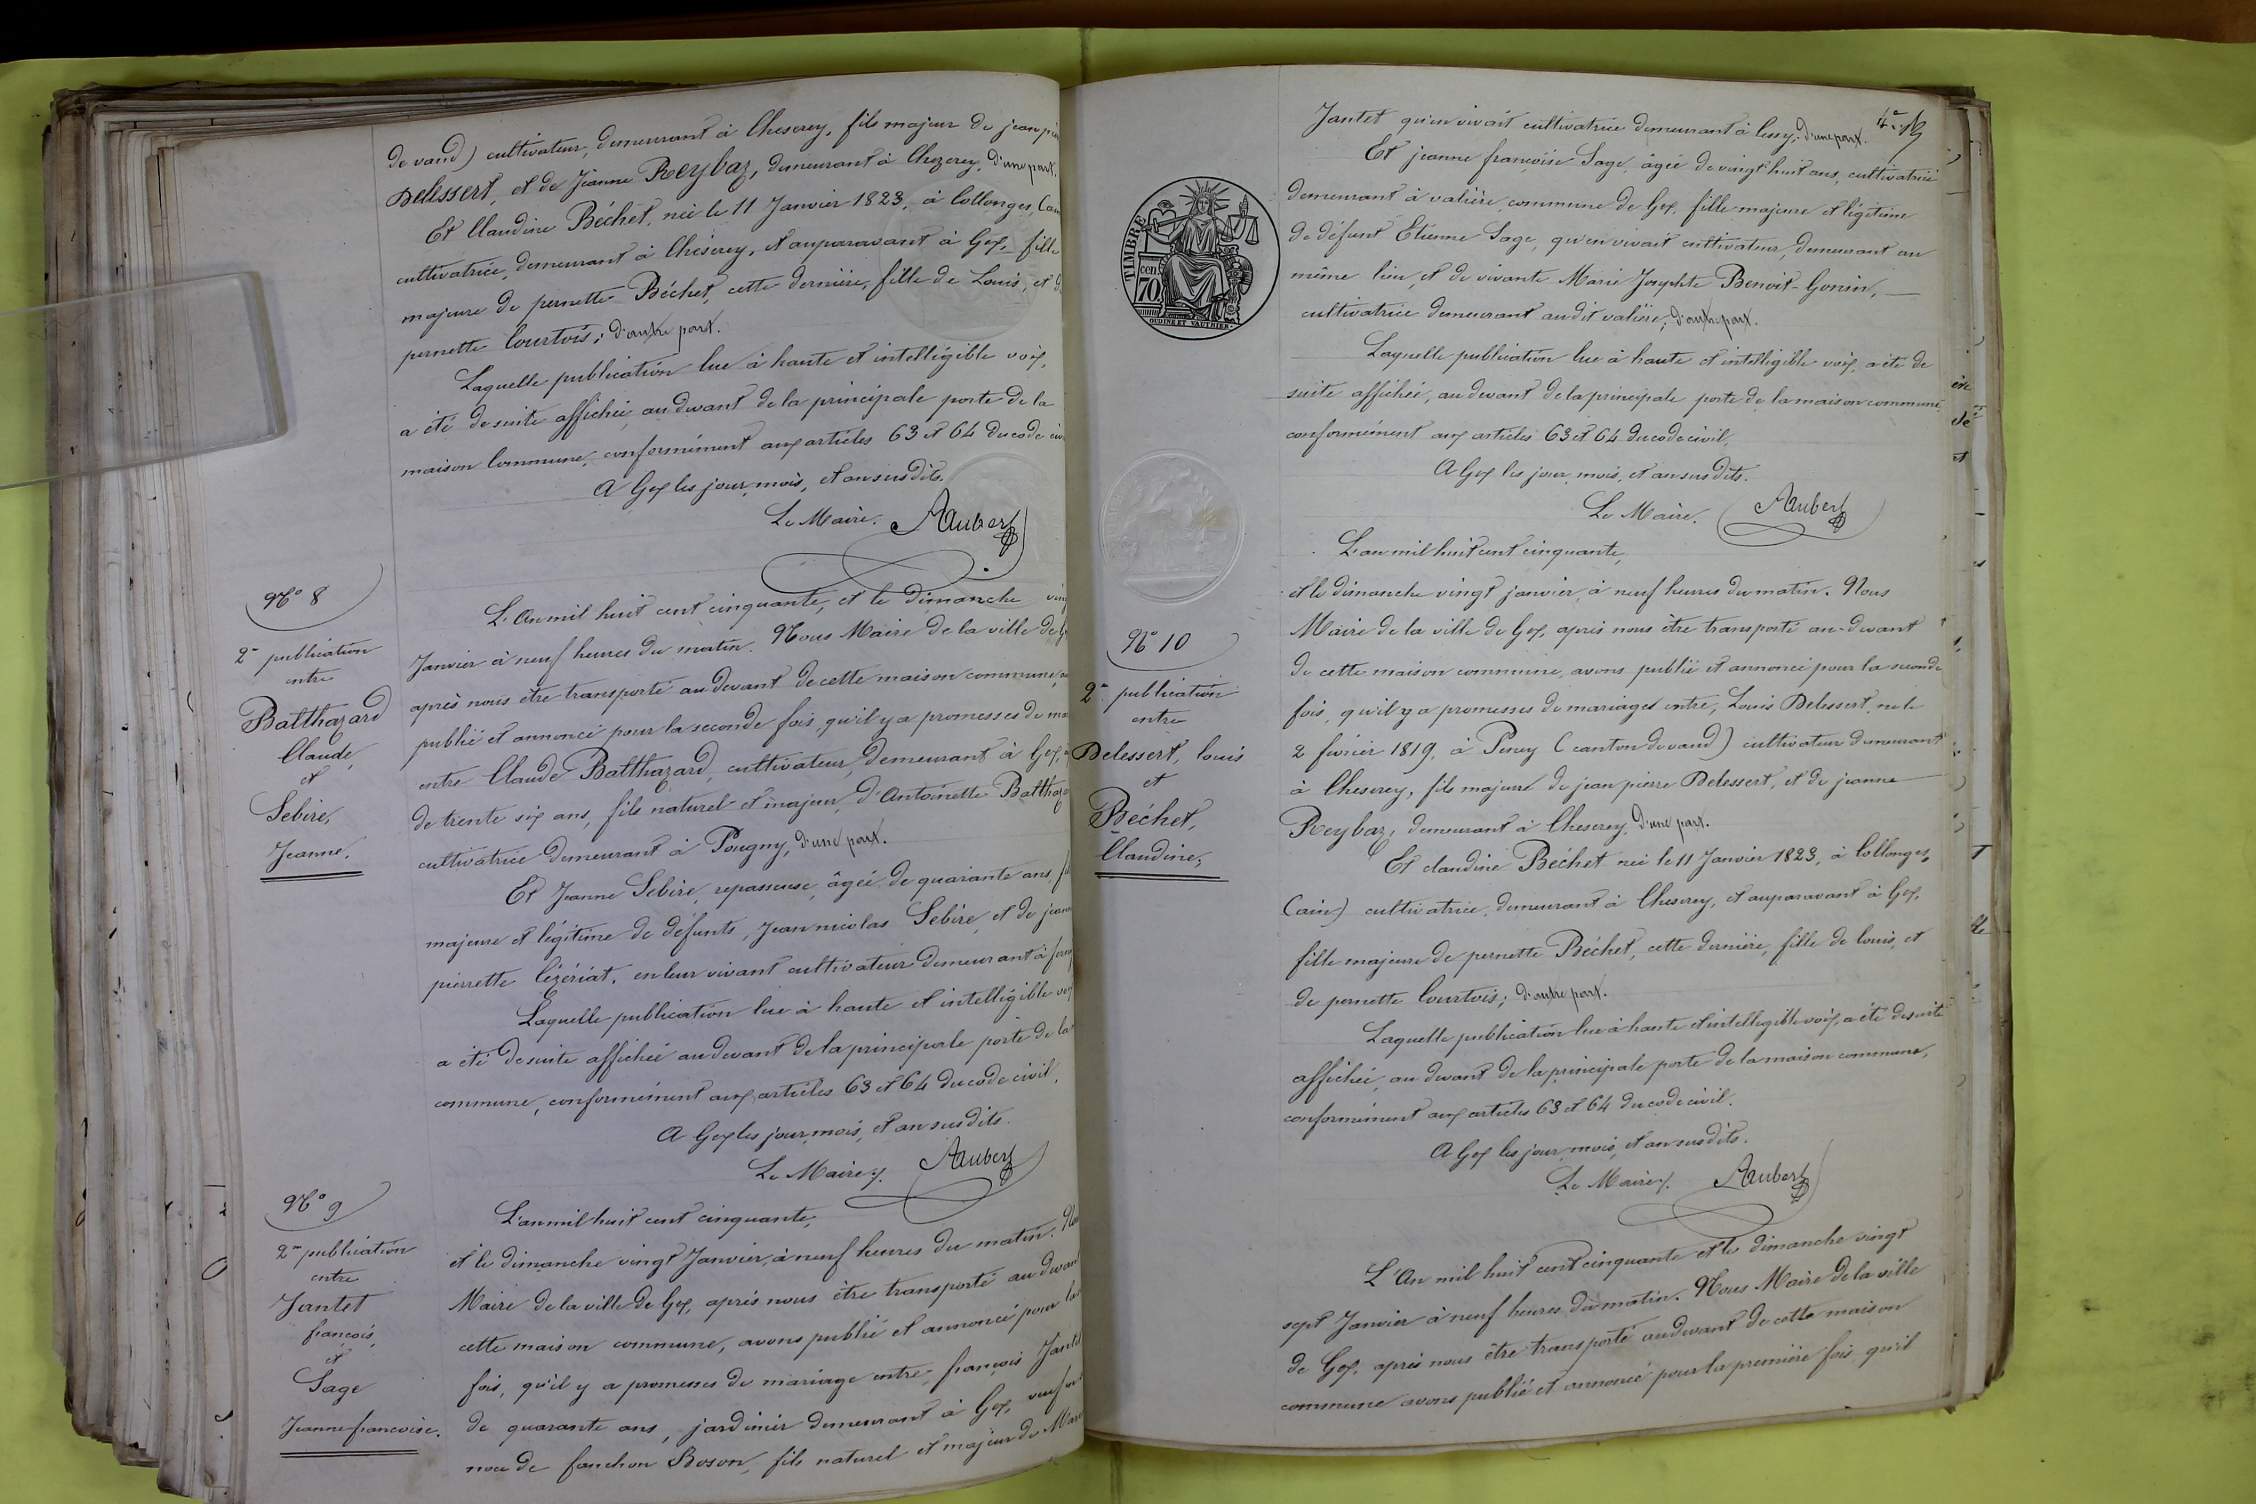 de vaud) cultivateur, demeurant à Cheserey, fils majeur de jean
Delessert, et de Jeanne Reybaz, demeurant à Chezerey, d'une part.
Et Claudine Béchet, née le 11 Janvier 1823, à Collonges,
cultivatrice, demeurant à Chéserey, et auparavant à Gex, fille
majeure de pernette Béchet, cette dernière, fille de Louis, et
pernette Courtois; d'autre part.
Laquelle publication lue à haute et intelligible voix,
a été de suite affichée, au devant de la principale porte de la
maison Commune, conformément aux articles 63 et 64 du code
A Gex les jour, mois, et an susdits.
Le Maire. Aubert
No 8
2e publication
entre
Balthazard
Claude,
et
Sebire,
Jeanne.
L'An mil huit cent cinquante, et le dimanche
Janvier à neuf heures du matin. Nous Maire de la ville de
après nous être transporté au devant de cette maison commune,
publié et annoncé pour la seconde fois, qu'il y a promesses de
entre Claude Balthazard, cultivateur, demeurant à Gex,
de trente six ans, fils naturel et majeur, d'Antoinette
cultivatrice demeurant à Pougny, d'une part.
Et Jeanne Sebire, repasseuse, âgée de quarante ans,
majeure et légitime de défunts, Jean nicolas Sebire, et de
pierrette Cézériat, en leur vivant cultivateur demeurant à
Laquelle publication lue à haute et intelligible
a été de suite affichée au devant de la principale porte de la
commune, conformément aux articles 63 et 64 du code civil.
A Gex les jour, mois, et an susdits.
Le Maire. Aubert
No 9
2e publication
entre
Jantet
françois,
et
Sage
Jeanne francoise.
L'an mil huit cent cinquante,
et le dimanche vingt Janvier, à neuf heures du matin.
Maire de la ville de Gex, après nous être transporté au
cette maison commune, avons publié et annoncé pour la
fois, qu'il y a promesses de mariage entre, françois
de quarante ans, jardinier demeurant à Gex,
de fanchon Boson, fils naturel et majeur de
4e
Jantet qu'en vivait cultivatrice demeurant à Cessy, d'une part.
Et jeanne françoise Sage, âgée de vingt huit ans, cultivatrice
demeurant à valière, commune de Gex, fille majeure et légitime
de défunt Etienne Sage, qu'en vivait cultivateur, demeurant au
même lieu, et de vivante Marie Josephte Benoit-Gonin,
cultivatrice demeurant audit valière; d'autre part.
TIMBRE
70 cen
OUDINE ET VAUTHIER.
Laquelle publication lue à haute et intelligible voix, a été de
suite affichée, au devant de la principale porte de la maison commune
conformément aux articles 63 et 64 du code civil.
A Gex les jour, mois, et an susdits.
Le Maire. Aubert
No 10
2e publication
entre
Delessert, louis
et
Béchet,
Claudine,
L'an mil huit cent cinquante,
et le dimanche vingt janvier, à neuf heures du matin. Nous
Maire de la ville de Gex, après nous être transporté au-devant
de cette maison commune, avons publié et annoncé pour la seconde
fois, qu'il y a promesses de mariages entre, Louis Delessert, né le
2 février 1819, à Peney (canton de vaud) cultivateur demeurant
à Cheserey, fils majeur de jean pierre Delessert, et de jeanne
Reybaz, demeurant à Cheserey, d'une part.
Et claudine Béchet née le 11 Janvier 1823, à Collonges,
(ain) cultivatrice, demeurant à Cheserey, et auparavant à Gex,
fille majeure de pernette Béchet, cette dernière, fille de louis, et
de pernette Courtois; d'autre part.
Laquelle publication lue à haute et intelligible voix, a été de suite
affichée, au devant de la principale porte de la maison commune,
conformément aux articles 63 et 64 du code civil.
A Gex les jour, mois, et an susdits.
Le Maire. Aubert
L'An mil huit cent cinquante et le dimanche vingt
sept Janvier à neuf heures du matin. Nous Maire de la ville
de Gex, après nous être transporté au devant de cette maison
commune avons publié et annoncé pour la première fois, qu'il